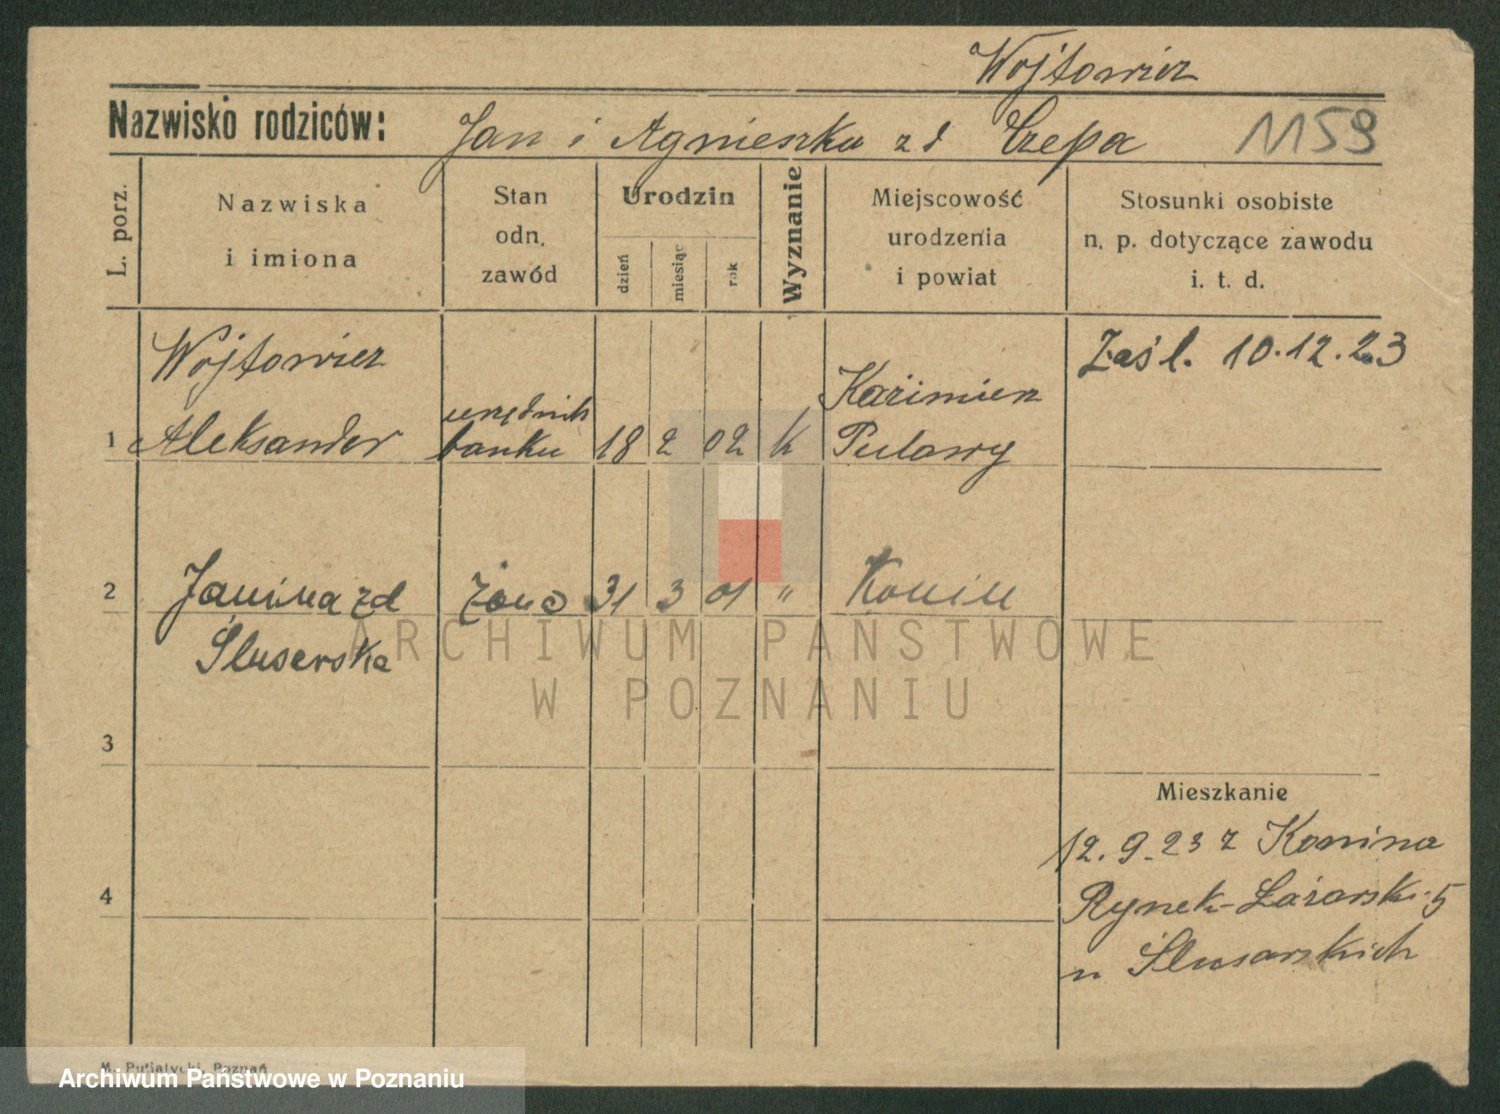 Wojtowicz
Nazwisko rodziców: Jan i Agnieszka zd Czepa 1159
L. porz.
Nazwiska
i imiona
Stan
odn.
zawód
Urodzin
dzień
miesiąc
rok
Wyznanie
Miejscowość
urodzenia
i powiat
Stosunki osobiste
n. p. dotyczące zawodu
i. t. d.
Wojtowicz
Zaśl. 10.12.23
urzędnik Kazimierz
1 Aleksander banku 18 2 02 k Puławy
2 Janina zd Żona 31 3 01 " Konin
Ślusarska
3
Mieszkanie
12.9.23 z Konina
4
Rynek-Łazarski 5
u Ślusarskich
ARCHIWUM PAŃSTWOWE
W POZNANIU
M. Putiatycki, Poznań
Archiwum Państwowe w Poznaniu